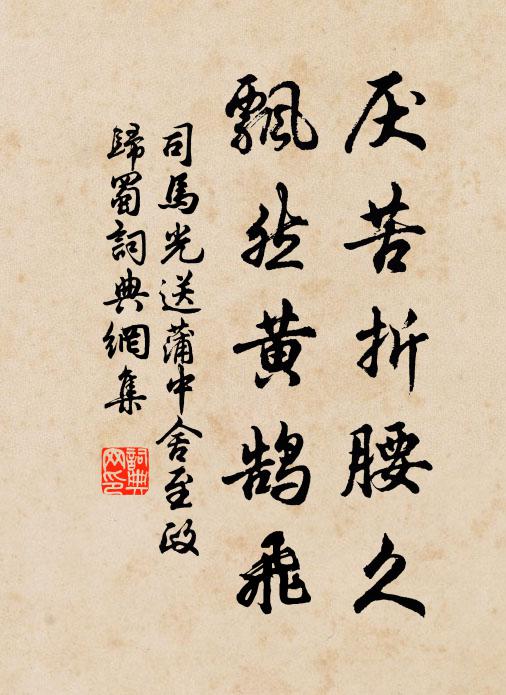 厌苦折腰久
飘然黄鹄飛
司馬光送蒲中舍至政
歸蜀詞典網集
詞典
网印